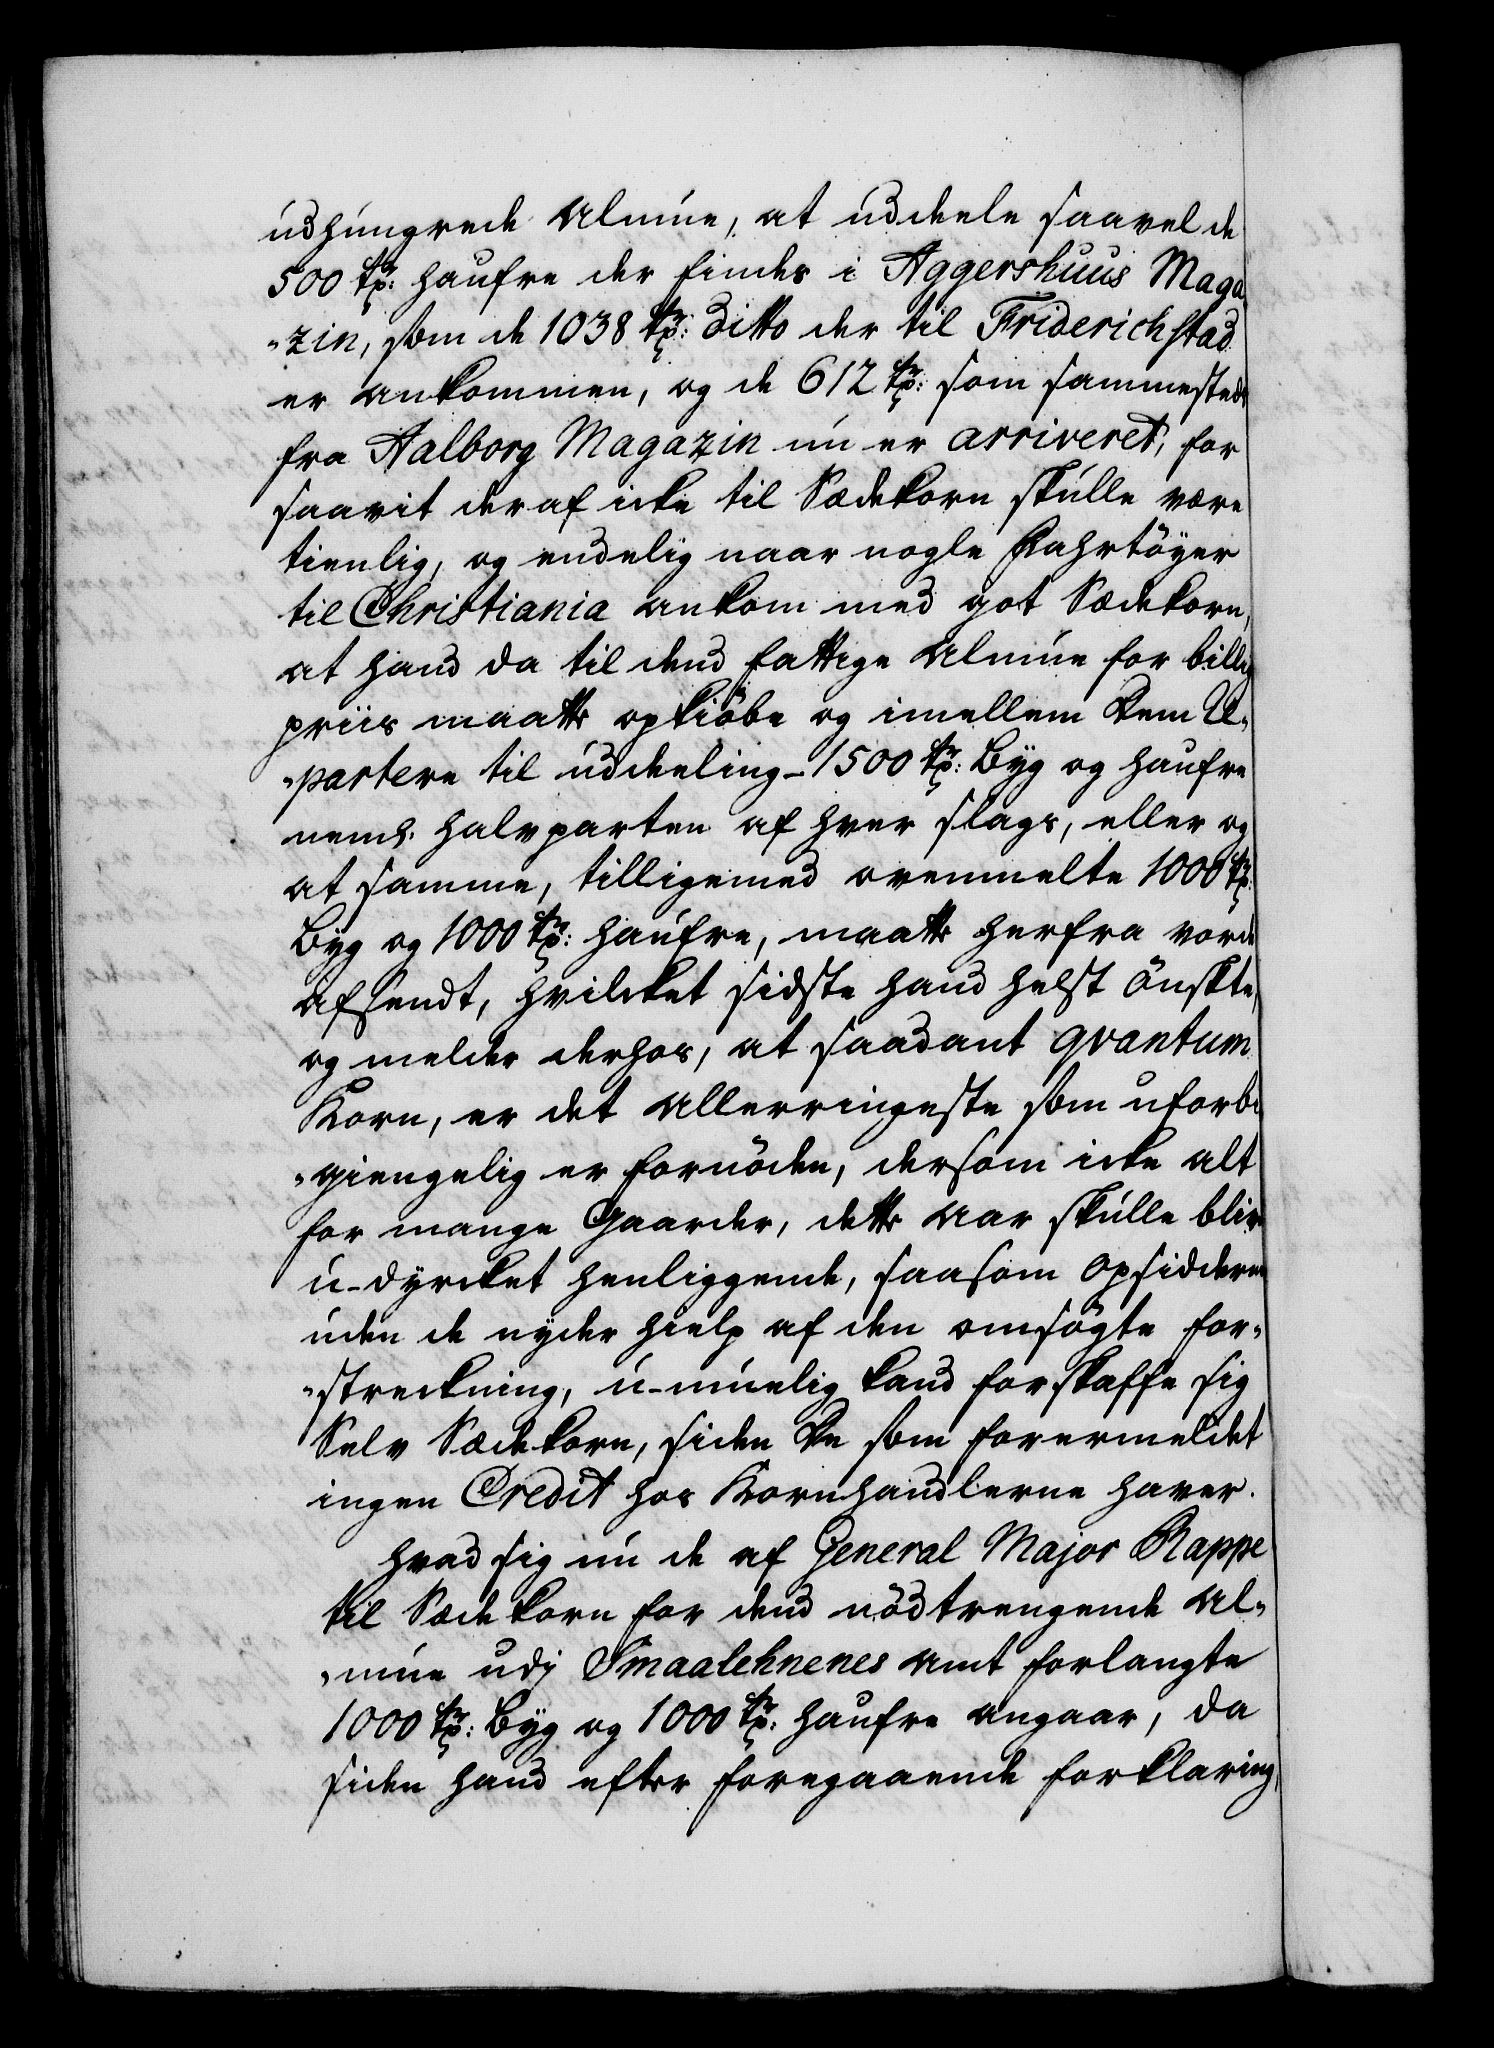 udhungrede Almue, at uddeele saavel de
500 tr: Haufre der findes i Aggershuus Maga
-zin, som de 1038 tr: Ditto der til Friderichstad
er ankommen, og de 612 tr: som sammesteds
fra Aalborg Magazin nu er arriveret, for
saavit deraf icke til Sædekorn skulle være
tienlig, og endelig naar nogle Fahrtöyer
til Christiania ankom med got Sædekorn,
at hand da til dend fattige Almue for billig
priis maatte opkiöbe og imellem Dem
-partere til uddeeling - 1500 tr: Byg og Haufre
neml. halvparten af hver slags, eller og
at samme, tilligemed ovenmelte 1000 tr:
Byg og 1000 tr: Haufre, maatte herfra vorde
afsendt, hvilcket sidste hand helst önskte,
og melder derhos, at saadant qvantum
Korn, er det allerringeste som uforbi
-giengelig er fornöden, dersom icke alt
for mange Gaarder, dette Aar skulle blive
u-dyrcket henliggende, saasom opsidderne
uden de nyder hielp af den omsögte for-
-streckning, u-muelig kand forskaffe sig
Selv Sædekorn, siden De som forermeldet
ingen Credit hos Kornhandlerne haver.
Hvad sig nu de af General Major Rappe
til Sædekorn for dend nödtrengende Al-
-mue udj Smaalehnenes Amt forlangte
1000 tr: Byg og 1000 tr: Haufre angaar, da
siden hand efter foregaaende forklaring,